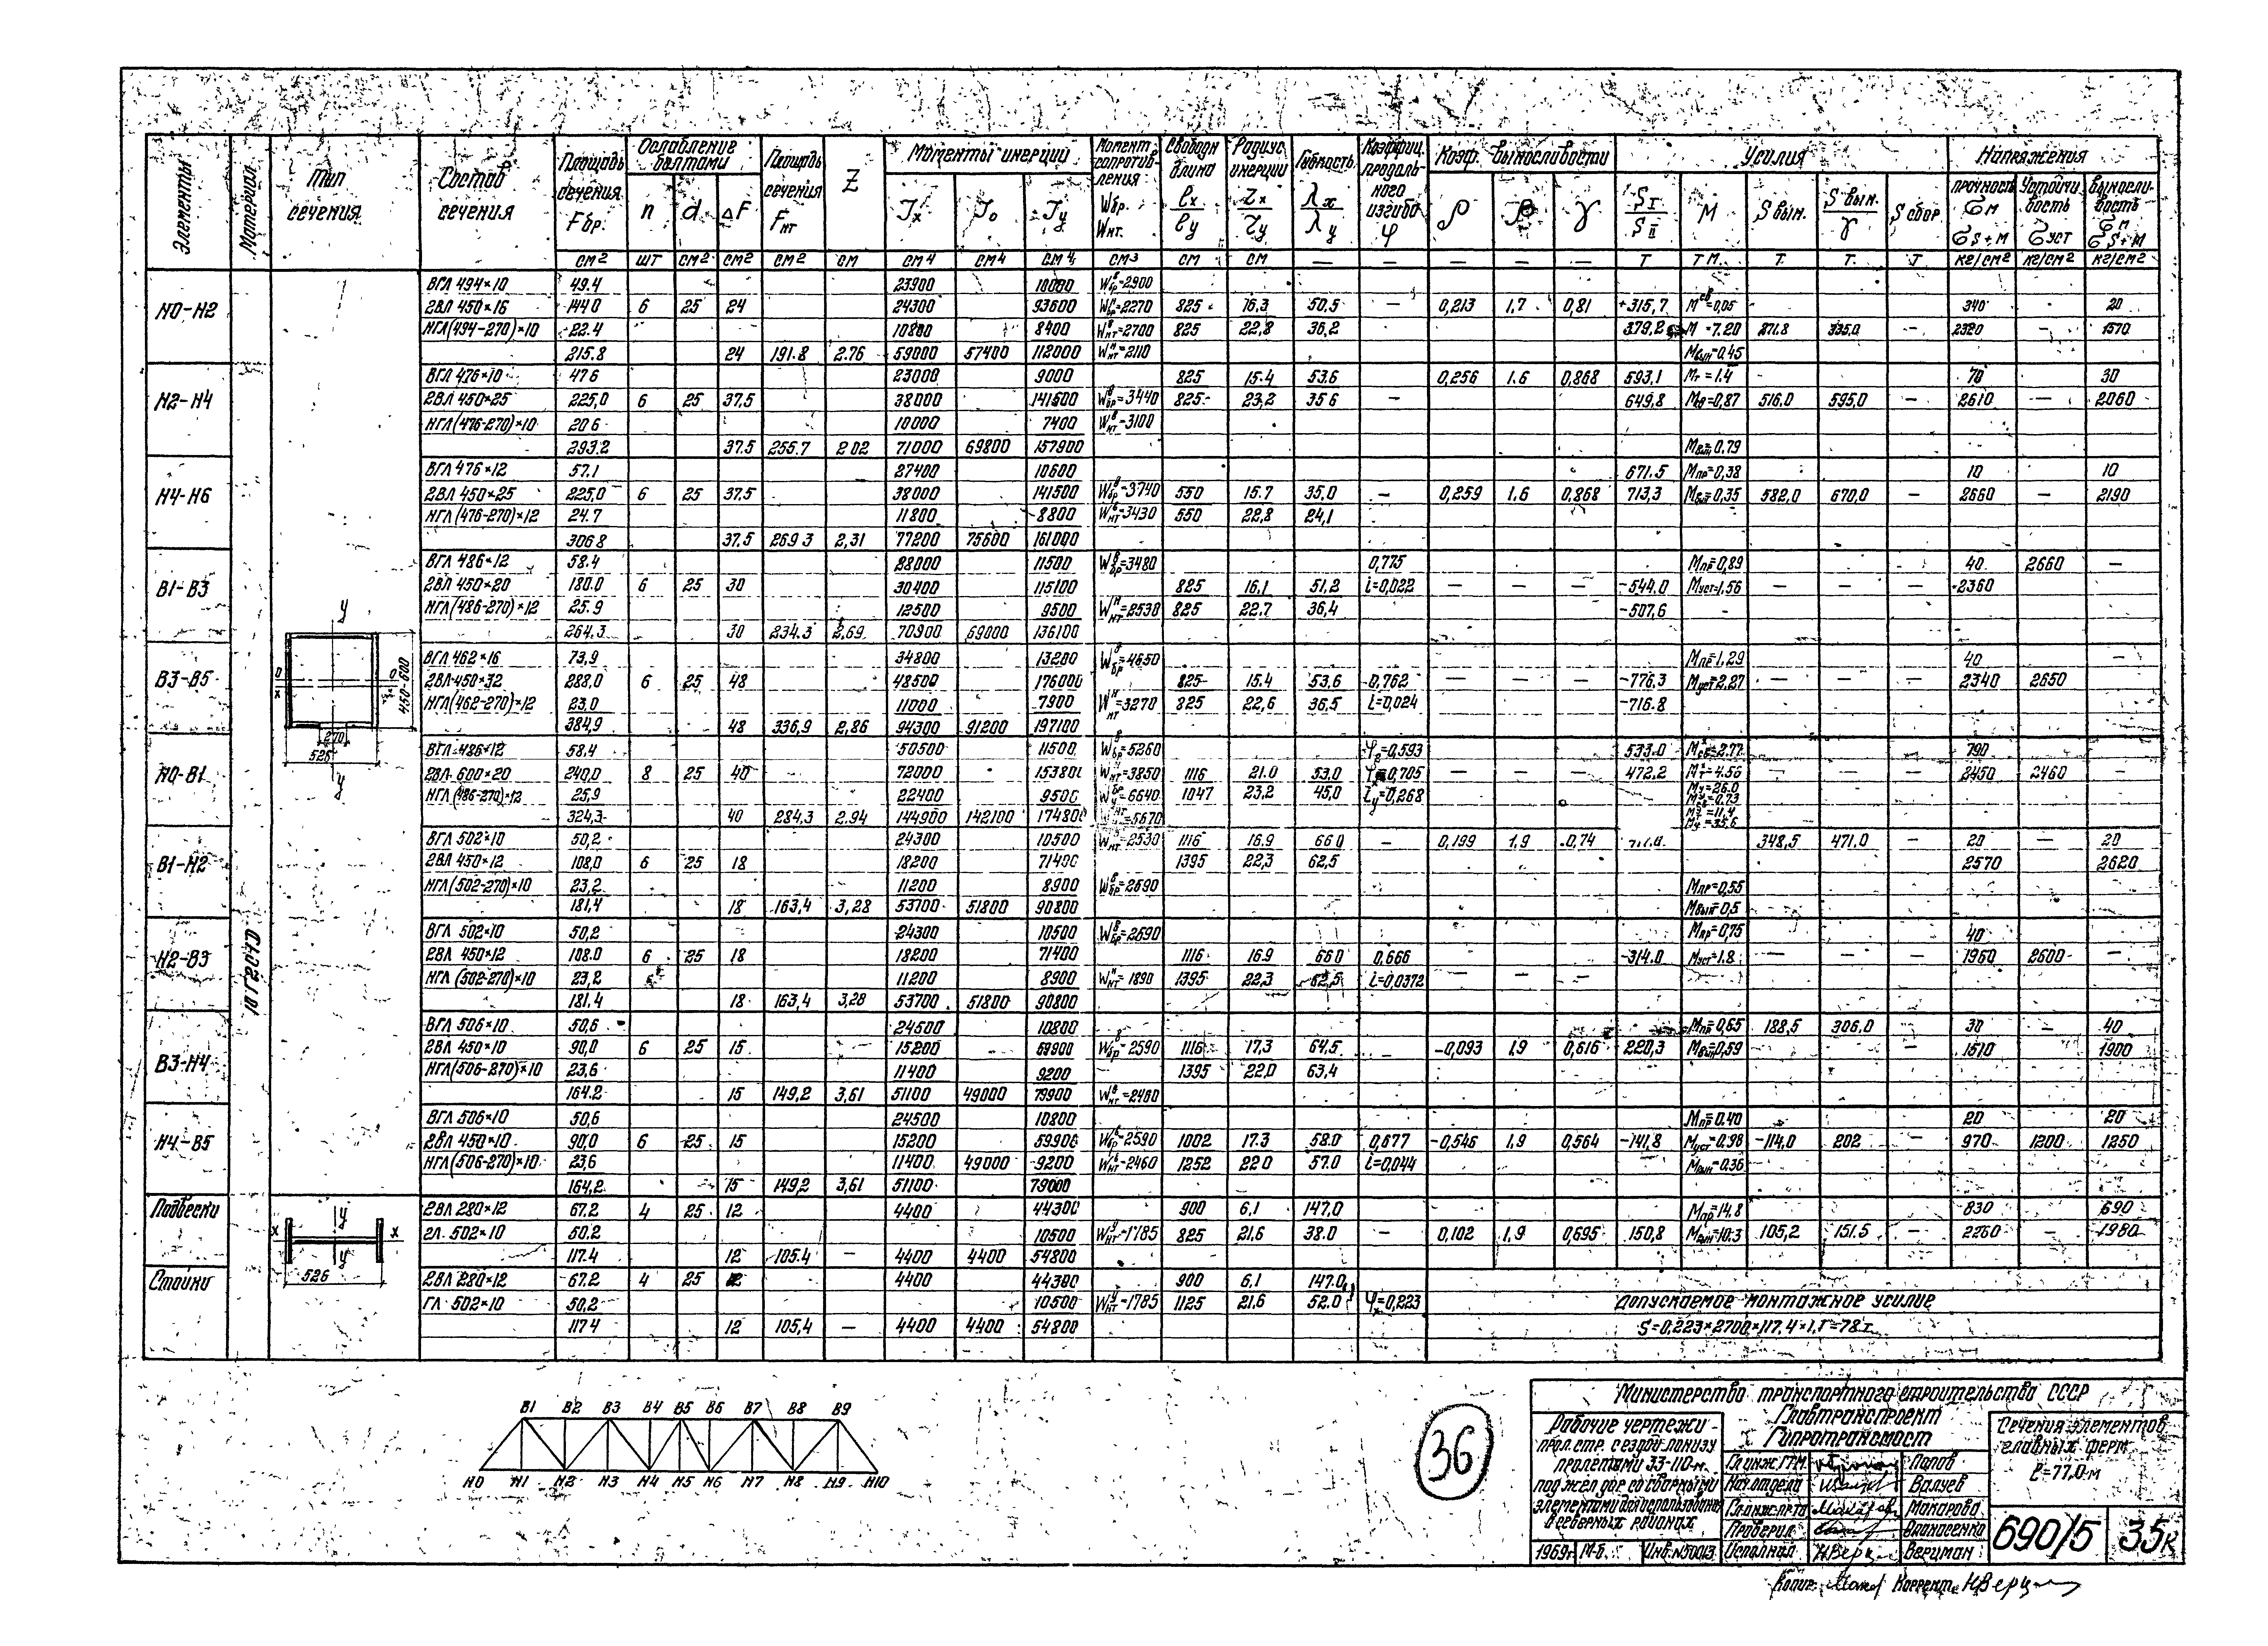 Элементы
Материал
Тип сечения
Состав сечения
Площадь сечения Fбр.
Ослабление болтами
n d ΔF
Площадь сечения Fнт
Z
Моменты инерции
Jx Jo Jy
Момент сопротивления Wбр. Wнт.
Свободн длина ℓx ℓy
Радиус инерции
Гибкость λx λy
Коэффиц. продольного изгиба φ
Коэф. выносливости
ρ β γ
Усилия
SI SII M Sвын. Sвын./γ Sсбор.
Напряжения
прочность σм σs+м
Устойчивость σуст
Выносливость σм σs+м
см2 шт см2 см2 см2 см см4 см4 см4 см3 см см — — — — — т тм. т. т. т кг/см2 кг/см2 кг/см2
Н0-Н2
ВГЛ 494×10 49.4 23900 10000 Wбр=2900
2ВЛ 450×16 144.0 6 25 24 24300 93600 Wбр=2270 825 16.3 50.5 — 0,213 1.7 0,81 +315,7 Mсв=0,05 340 20
НГЛ(494-270)×10 22.4 10800 8400 Wнт=2700 825 22,8 36,2 379.2 M=7.20 271.8 335.0 — 2320 — 1570
215.8 24 191.8 2.76 59000 57400 112000 Wнт=2110 Mвын=0,45
Н2-Н4
ВГЛ 476×10 47.6 23000 9000 825 15.4 53.6 0,256 1.6 0,868 593,1 Mт=1.4 70 30
2ВЛ 450×25 225,0 6 25 37.5 38000 141500 Wбр=3440 825 23,2 35.6 — 649,8 =0,87 516.0 595,0 — 2610 — 2060
НГЛ(476-270)×10 20.6 10000 7400 Wнт=3100
293.2 37.5 255.7 2.02 71000 69800 157900 Mвын=0,79
Н4-Н6
ВГЛ 476×12 57.1 27400 10600 671.5 Mпр=0,38 10 10
2ВЛ 450×25 225,0 6 25 37.5 38000 141500 Wбр=3740 550 15.7 35,0 — 0,259 1.6 0,868 713,3 Mвын=0,35 582,0 670,0 — 2660 — 2190
НГЛ(476-270)×12 24.7 11800 8800 Wнт=3430 550 22,8 24,1
306.8 37.5 269.3 2,31 77200 75600 161000
В1-В3
ВГЛ 486×12 58.4 28000 11500 Wбр=3480 0,775 Mпр=0,89 40 2660 —
2ВЛ 450×20 180.0 6 25 30 30400 115100 825 16,1 51,2 i=0,022 — — — -544,0 Mуст=1,56 — — — 2360
НГЛ(486-270)×12 25.9 12500 9500 Wнт=2530 825 22.7 36,4 -507,6
264,3 30 234.3 2,69 70900 69000 136100
В3-В5
ВГЛ 462×16 73,9 34800 13200 Wбр=4650 Mпр=1,29 40 —
2ВЛ 450×32 288,0 6 25 48 48500 176000 825 15.4 53,6 0,762 — — — -776.3 Mуст=2,27 — — — 2340 2650
НГЛ(462-270)×12 23,0 11000 7900 Wнт=3270 825 22,6 36,5 i=0,024 -716.8
384,9 48 336,9 2,86 94300 91200 197100
Н0-В1
ВГЛ 486×12 58.4 50500 11500 Wбр=5260 φ=0,593 533.0 =2.77 790
2ВЛ 600×20 240,0 8 25 40 72000 153800 Wнт=3850 1116 21.0 53.0 =0,705 — — — 472.2 =4.56 — — — 2450 2460 —
НГЛ(486-270)×12 25,9 22400 9500 =6640 1047 23,2 45,0 iy=0,268 =26.0
=0,73
=11,4
324,3 40 284,3 2.94 144900 142100 174800 =5670 =35,6
В1-Н2
ВГЛ 502×10 50,2 24300 10500 Wнт=2530 1116 16.9 66.0 — 0,199 1.9 0,74 348,5 471.0 — 20 — 20
2ВЛ 450×12 108,0 6 25 18 18200 71400 1395 22,3 62,5 2570 2620
НГЛ(502-270)×10 23,2 11200 8900 Wбр=2690 Mпр=0,55
181,4 18 163,4 3,28 53700 51800 90800 Mвын=0,5
Н2-В3
ВГЛ 502×10 50,2 24300 10500 Wбр=2690 Mпр=0,75 40
2ВЛ 450×12 108.0 6 25 18 18200 71400 1116 16.9 66.0 0,666 -314.0 Mуст=1.8 — — — 1960 2600 —
НГЛ(502-270)×10 23,2 11200 8900 Wнт=1890 1395 22,3 62,5 i=0,0372 — — —
181.4 18 163,4 3,28 53700 51800 90800
В3-Н4
ВГЛ 506×10 50,6 24500 10800 Mпр=0,65 188,5 306,0 30 — 40
2ВЛ 450×10 90,0 6 25 15 15200 59900 Wбр=2590 1116 17,3 64,5 — -0,093 1.9 0,616 220,3 Mвын=0,59 — 1510 1900
НГЛ(506-270)×10 23,6 11400 9200 1395 22,0 63,4
164.2 15 149,2 3,61 51100 49000 79900 Wнт=2460
Н4-В5
ВГЛ 506×10 50,6 24500 10800 Mпр=0.40 20 20
2ВЛ 450×10 90,0 6 25 15 15200 59900 Wбр=2590 1002 17.3 58.0 0,677 -0,546 1.9 0,564 -141,8 Mуст=0,98 -114,0 202 — 970 1200 1250
НГЛ(506-270)×10 23,6 11400 49000 9200 Wнт=2460 1252 22.0 57.0 i=0,044 Mвын=0,36
164,2 15 149,2 3,61 51100 79000
10Г2СД
О О
х
У
У
450-600
270
526
Подвески
2ВЛ 280×12 67.2 4 25 12 4400 44300 900 6.1 147.0 Mпр=14.8 830 690
2Л. 502×10 50.2 10500 Wнт=1785 825 21.6 38.0 — 0,102 1.9 0,695 150,8 Mвын=10.3 105,2 151.5 — 2260 — 1980
117.4 12 105.4 — 4400 4400 54800
х У х
У
526
Стойки
2ВЛ 280×12 67.2 4 25 12 4400 44300 900 6.1 147.0
ГЛ 502×10 50,2 10500 Wнт=1785 1125 21.6 52.0 φ=0,223 Допускаемое монтажное усилие
117.4 12 105,4 — 4400 4400 54800 S=0,223×2700×117.4×1,1=78т
В1 В2 В3 В4 В5 В6 В7 В8 В9
Н0 Н1 Н2 Н3 Н4 Н5 Н6 Н7 Н8 Н9 Н10
36
Министерство транспортного строительства СССР
Главтранспроект
Гипротрансмост
Рабочие чертежи
прол.стр. с ездой понизу
пролетами 33-110 м.
под жел.дор. со сварными
элементами для использования
в северных районах
Гл.инж.ГТМ Попов
Нач.отдела Валуев
Гл.инж.пр-та Макарова
Проверил
Исполнил Верцман
1969г. М-б. Инв.№50013
Сечения элементов
главных ферм
ℓ=77,0 м
690/5
35к
Копир. Коррект.